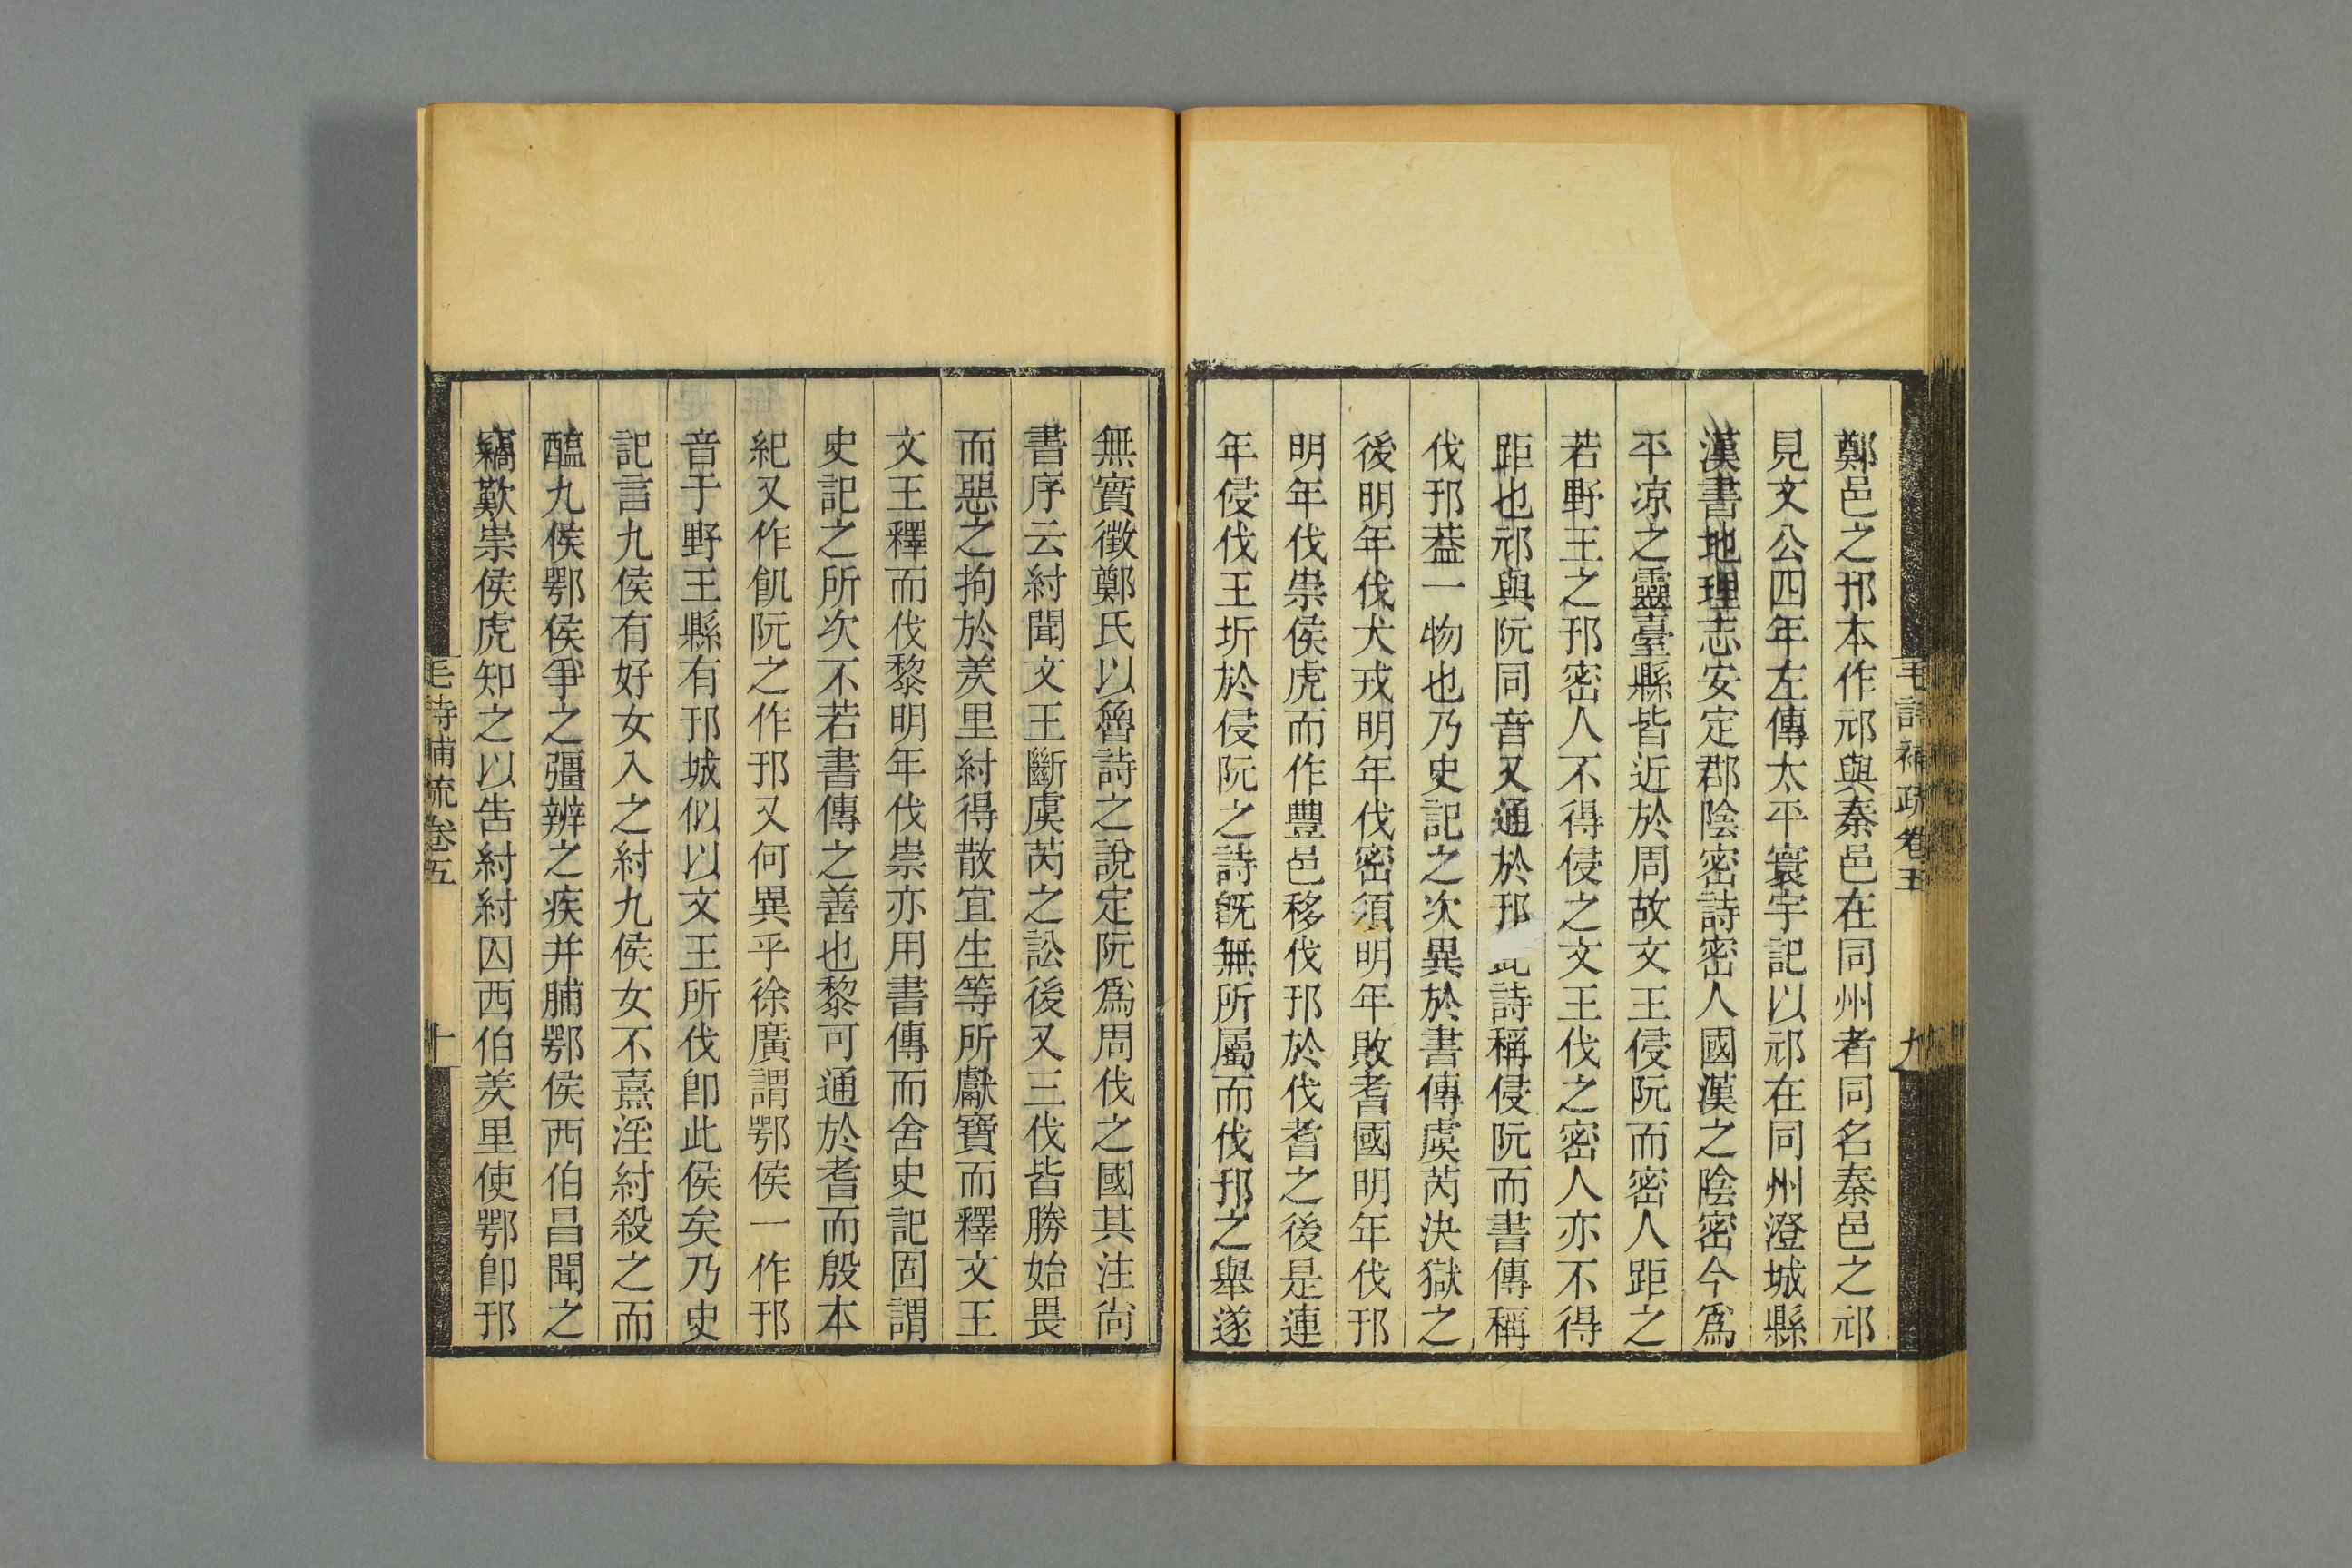 毛詩補疏卷五
九
鄭邑之邘本作祁與秦邑在同州者同名秦邑之祁
見文公四年左傳太平寰宇記以祁在同州澄城縣
漢書地理志安定郡陰密詩密人國漢之陰密今爲
平凉之靈臺縣皆近於周故文王侵阮而密人距之
若野王之邘密人不得侵之文王伐之密人亦不得
距也祁與阮同音又通於邘此詩稱侵阮而書傳稱
伐邘葢一物也乃史記之次異於書傳虞芮決獄之
後明年伐犬戎明年伐密須明年敗耆國明年伐邘
明年伐祟侯虎而作豐邑移伐邘於伐耆之後是連
年侵伐王圻於侵阮之詩旣無所屬而伐邘之舉遂
無實徵鄭氏以魯詩之說定阮爲周伐之國其注尙
書序云紂聞文王斷虞芮之訟後又三伐皆勝始畏
而惡之拘於羑里紂得散宜生等所獻寶而釋文王
文王釋而伐黎明年伐崇亦用書傳而舍史記固謂
史記之所次不若書傳之善也黎可通於耆而殷本
紀又作飢阮之作邘又何異乎徐廣謂鄂侯一作邘
音于野王縣有邘城似以文王所伐卽此侯矣乃史
記言九侯有好女入之紂九侯女不憙淫紂殺之而
醢九侯鄂侯爭之彊辨之疾并脯鄂侯西伯昌聞之
竊歎崇侯虎知之以告紂紂囚西伯羑里使鄂卽邘
毛詩補疏卷五
十